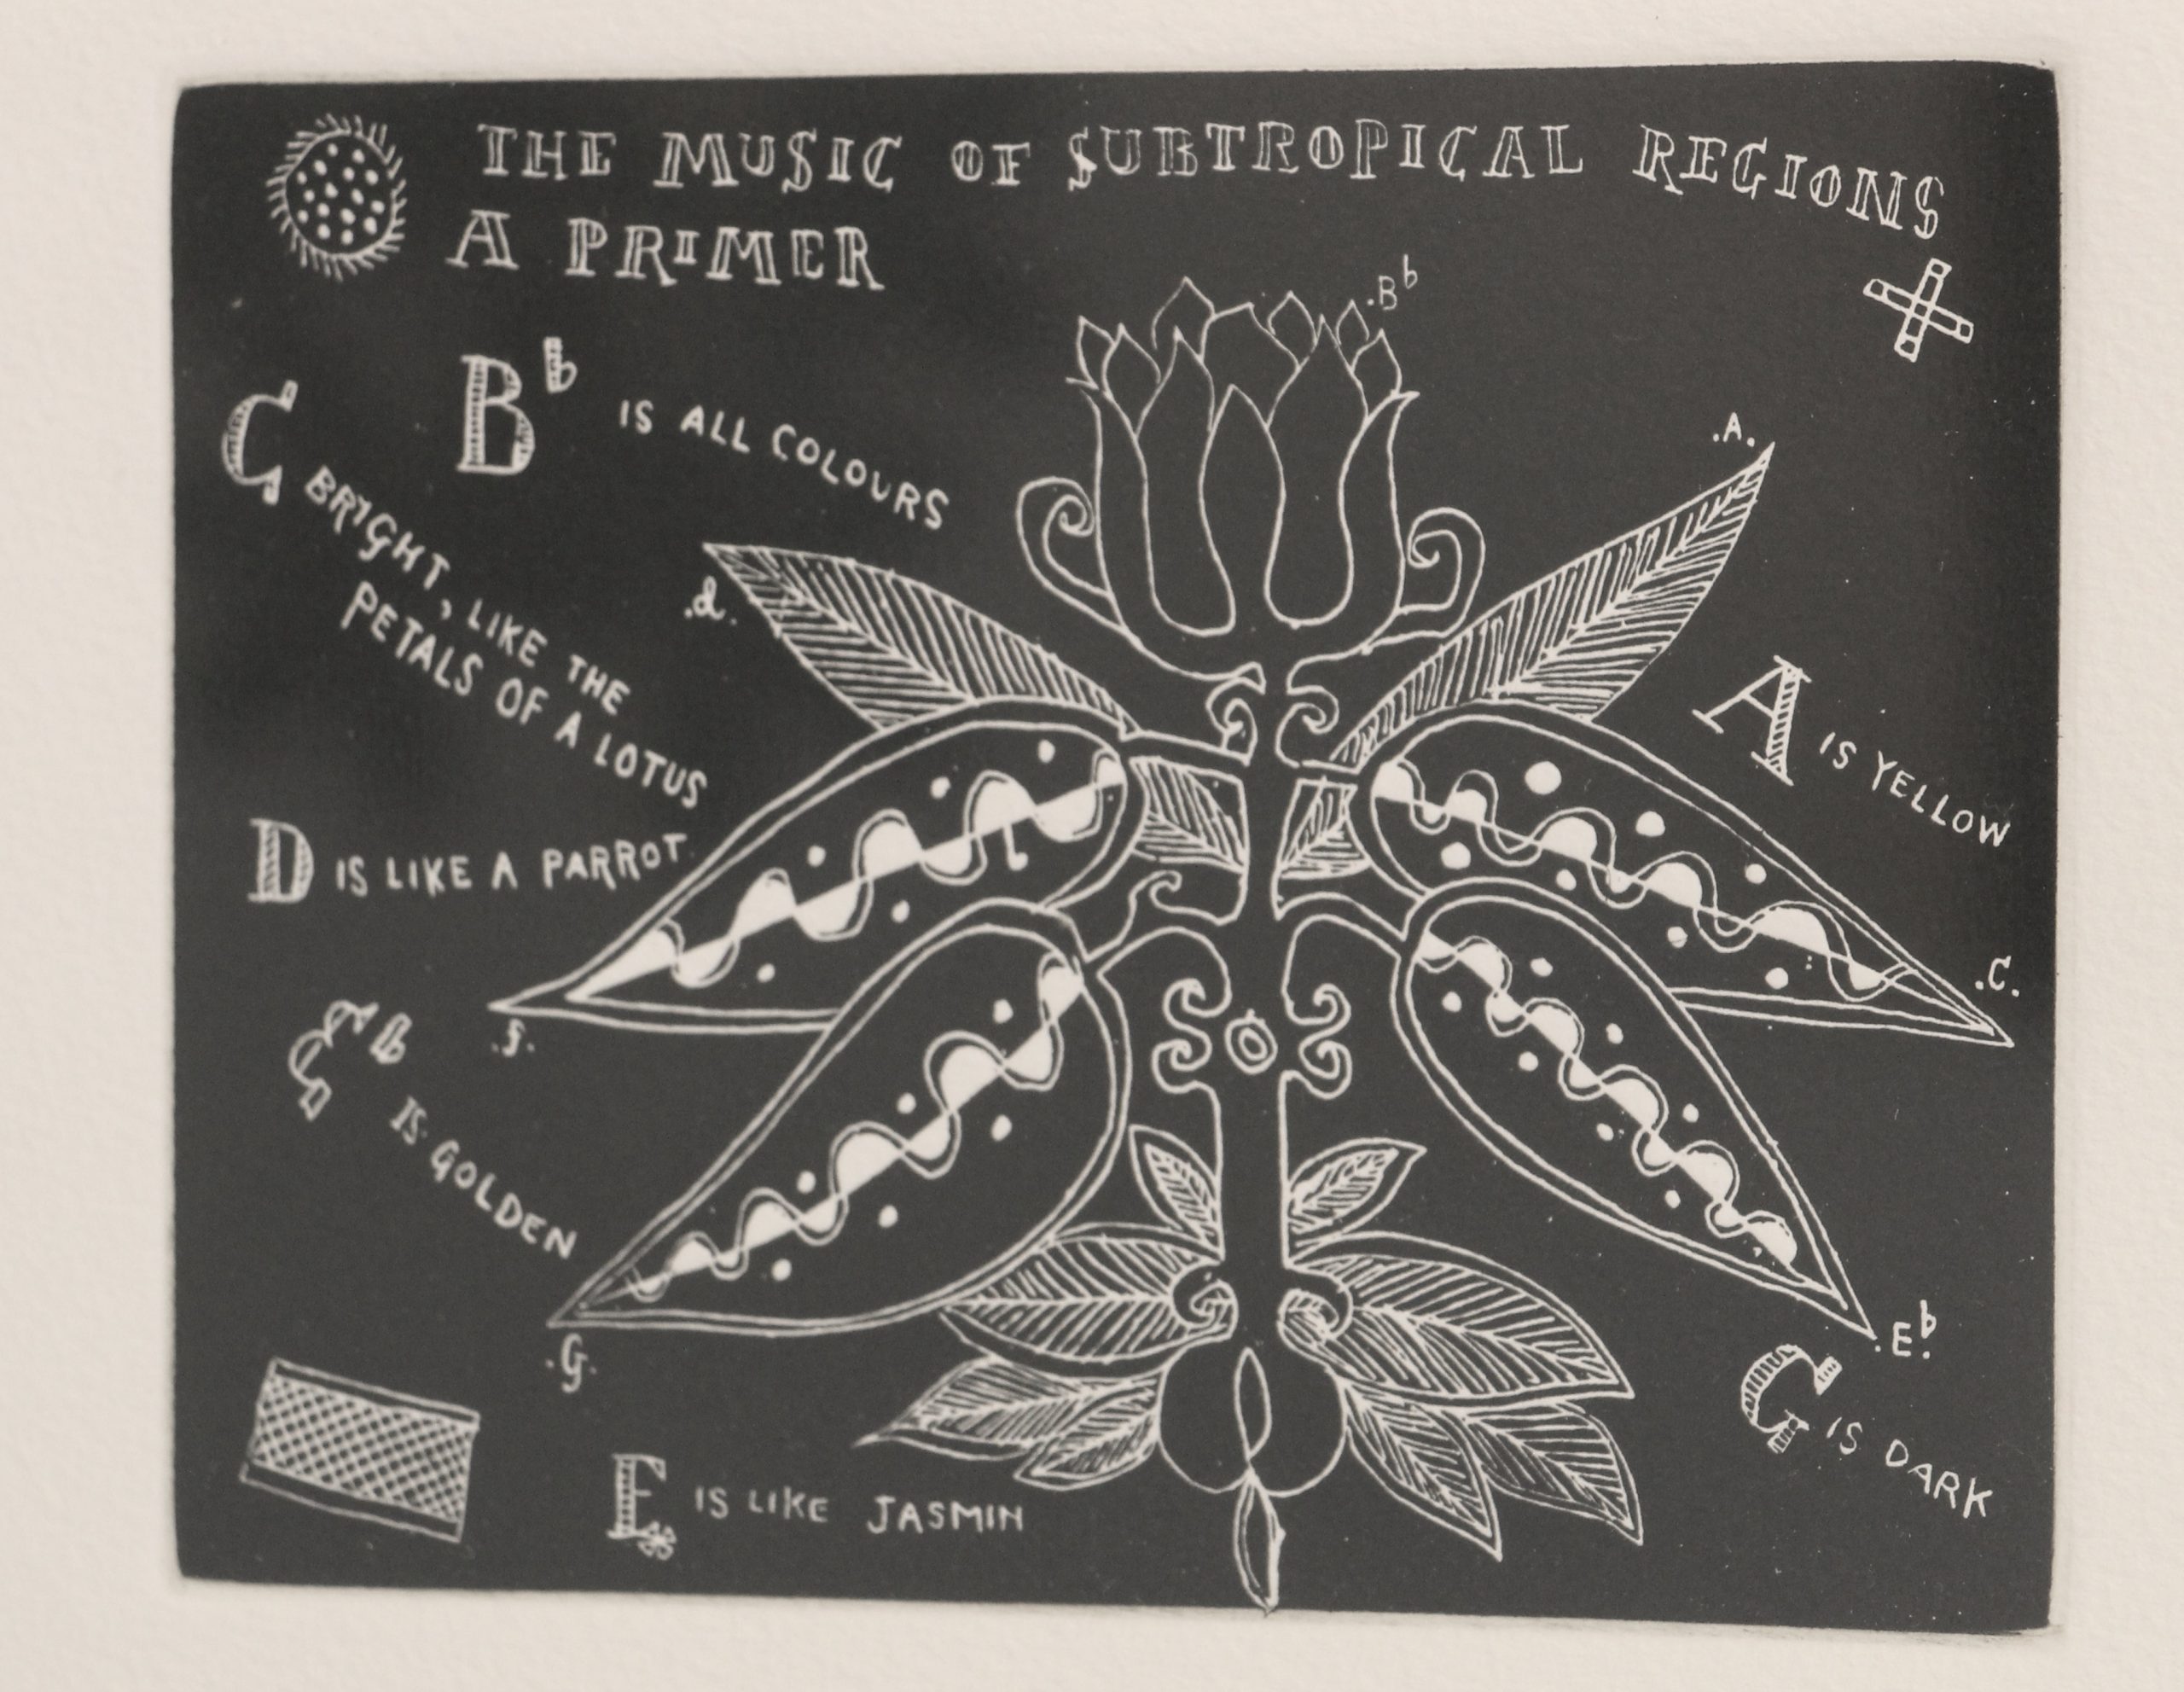 THE MUSIC OF SUBTROPICAL REGIONS
A PRIMER
.B♭
B♭ IS ALL COLOURS
C BRIGHT, LIKE THE
PETALS OF A LOTUS
.A.
.d.
A IS YELLOW
D IS LIKE A PARROT.
.C.
.f.
IS GOLDEN
.E♭.
.G.
G IS DARK
E IS LIKE JASMIN